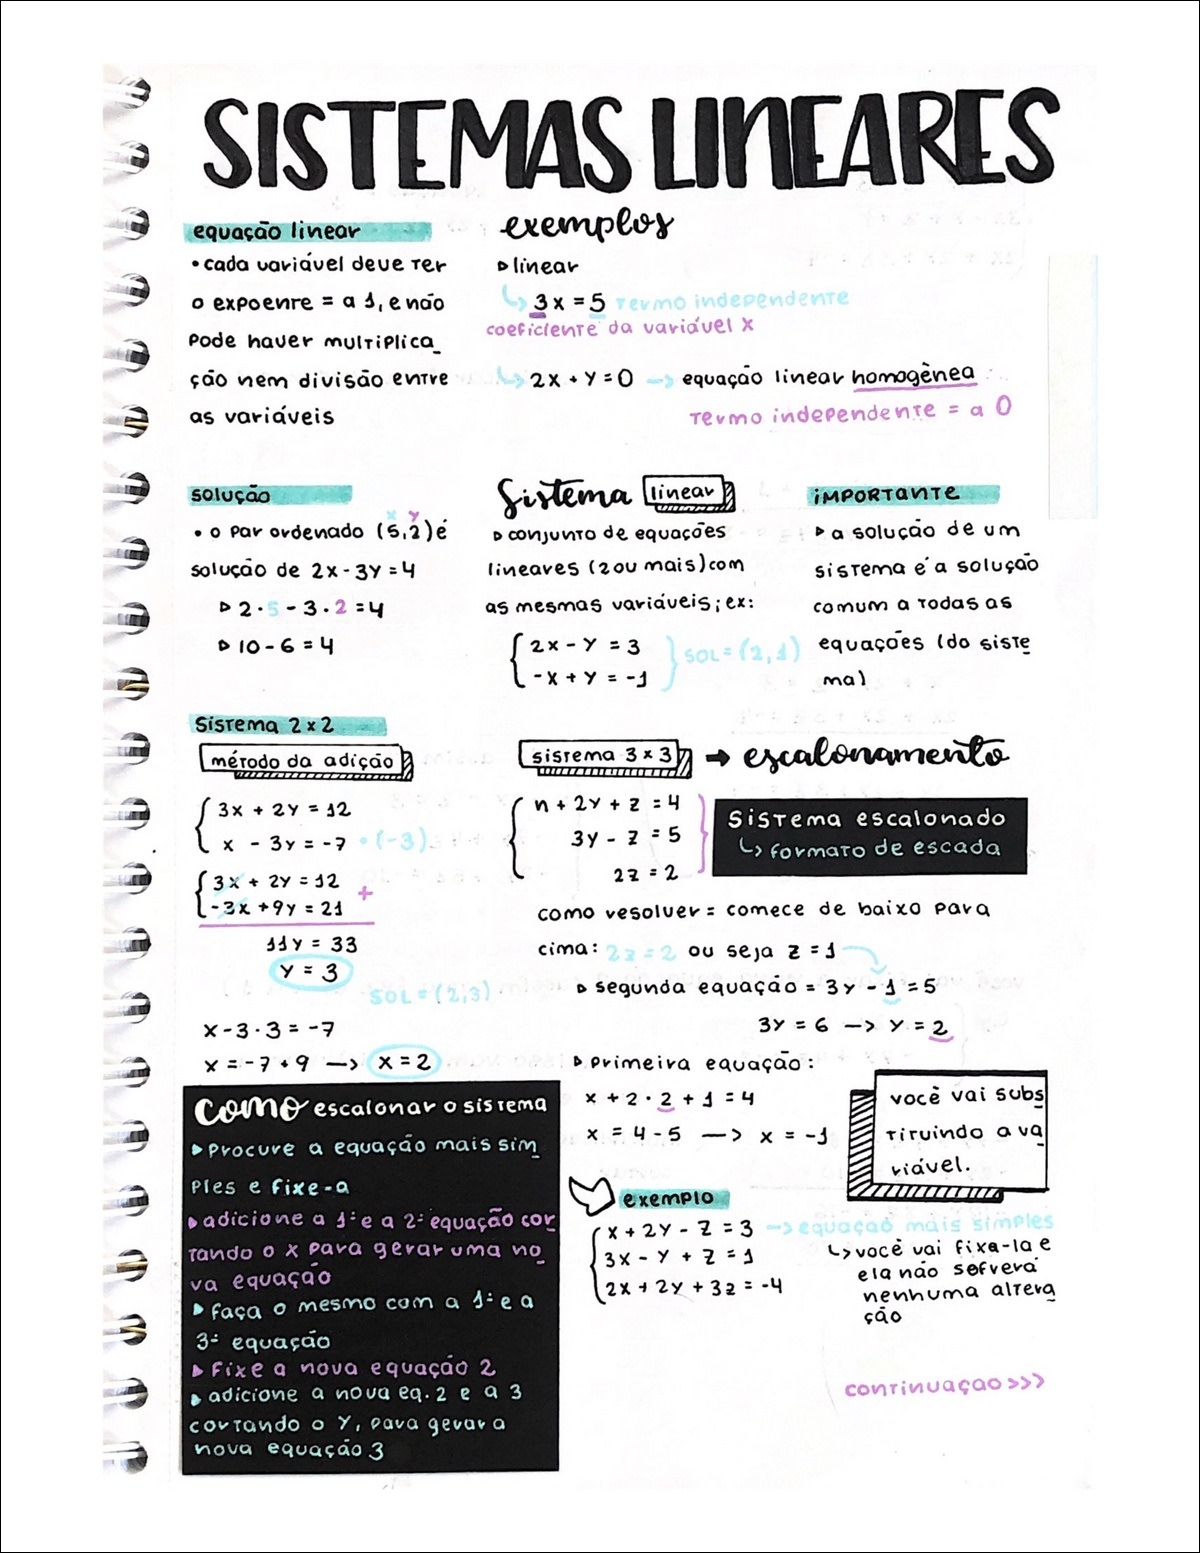 SISTEMAS LINEARES
equação linear
• cada variável deve ter
o expoente = a 1, e não
pode haver multiplica_
ção nem divisão entre
as variáveis
exemplos
▷ linear
↳ 3x = 5 termo independente
coeficiente da variável x
↳ 2x + y = 0 → equação linear homogênea
termo independente = a 0
solução
x y
• o par ordenado (5,2) é
solução de 2x - 3y = 4
▷ 2 · 5 - 3 · 2 = 4
▷ 10 - 6 = 4
Sistema linear
▷ conjunto de equações
lineares (2 ou mais) com
as mesmas variáveis; ex:
2x - y = 3
-x + y = -1
SOL = (2,1)
importante
▷ a solução de um
sistema é a solução
comum a todas as
equações (do siste
ma)
Sistema 2x2
método da adição
3x + 2y = 12
x - 3y = -7 · (-3)
3x + 2y = 12
-3x + 9y = 21 +
11y = 33
y = 3
SOL = (2,3)
x - 3 · 3 = -7
x = -7 + 9 → x = 2
sistema 3x3 → escalonamento
n + 2y + z = 4
3y - z = 5
2z = 2
Sistema escalonado
↳ formato de escada
como resolver = comece de baixo para
cima: 2z = 2 ou seja z = 1
▷ segunda equação = 3y - 1 = 5
3y = 6 → y = 2
▷ primeira equação:
x + 2 · 2 + 1 = 4
x = 4 - 5 → x = -1
você vai subs
tituindo a va
riável.
como escalonar o sistema
▷ procure a equação mais sim_
ples e fixe-a
▷ adicione a 1ª e a 2ª equação cor_
tando o x para gerar uma no_
va equação
▷ faça o mesmo com a 1ª e a
3ª equação
▷ Fixe a nova equação 2
▷ adicione a nova eq. 2 e a 3
cortando o y, para gerar a
nova equação 3
exemplo
x + 2y - z = 3 → equação mais simples
3x - y + z = 1
2x + 2y + 3z = -4
↳ você vai fixa-la e
ela não sofrerá
nenhuma altera
ção
continuação >>>